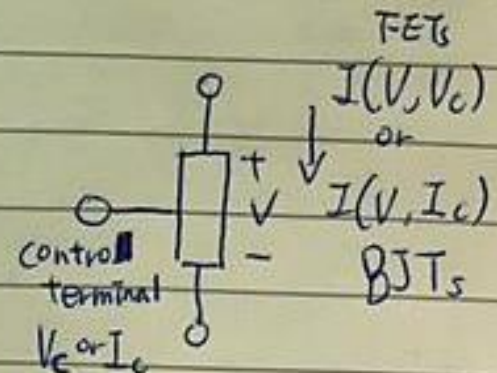 FETs
I(V, Vc)
or
I(V, Ic)
BJTs
+
V
-
control
terminal
Vc or Ic